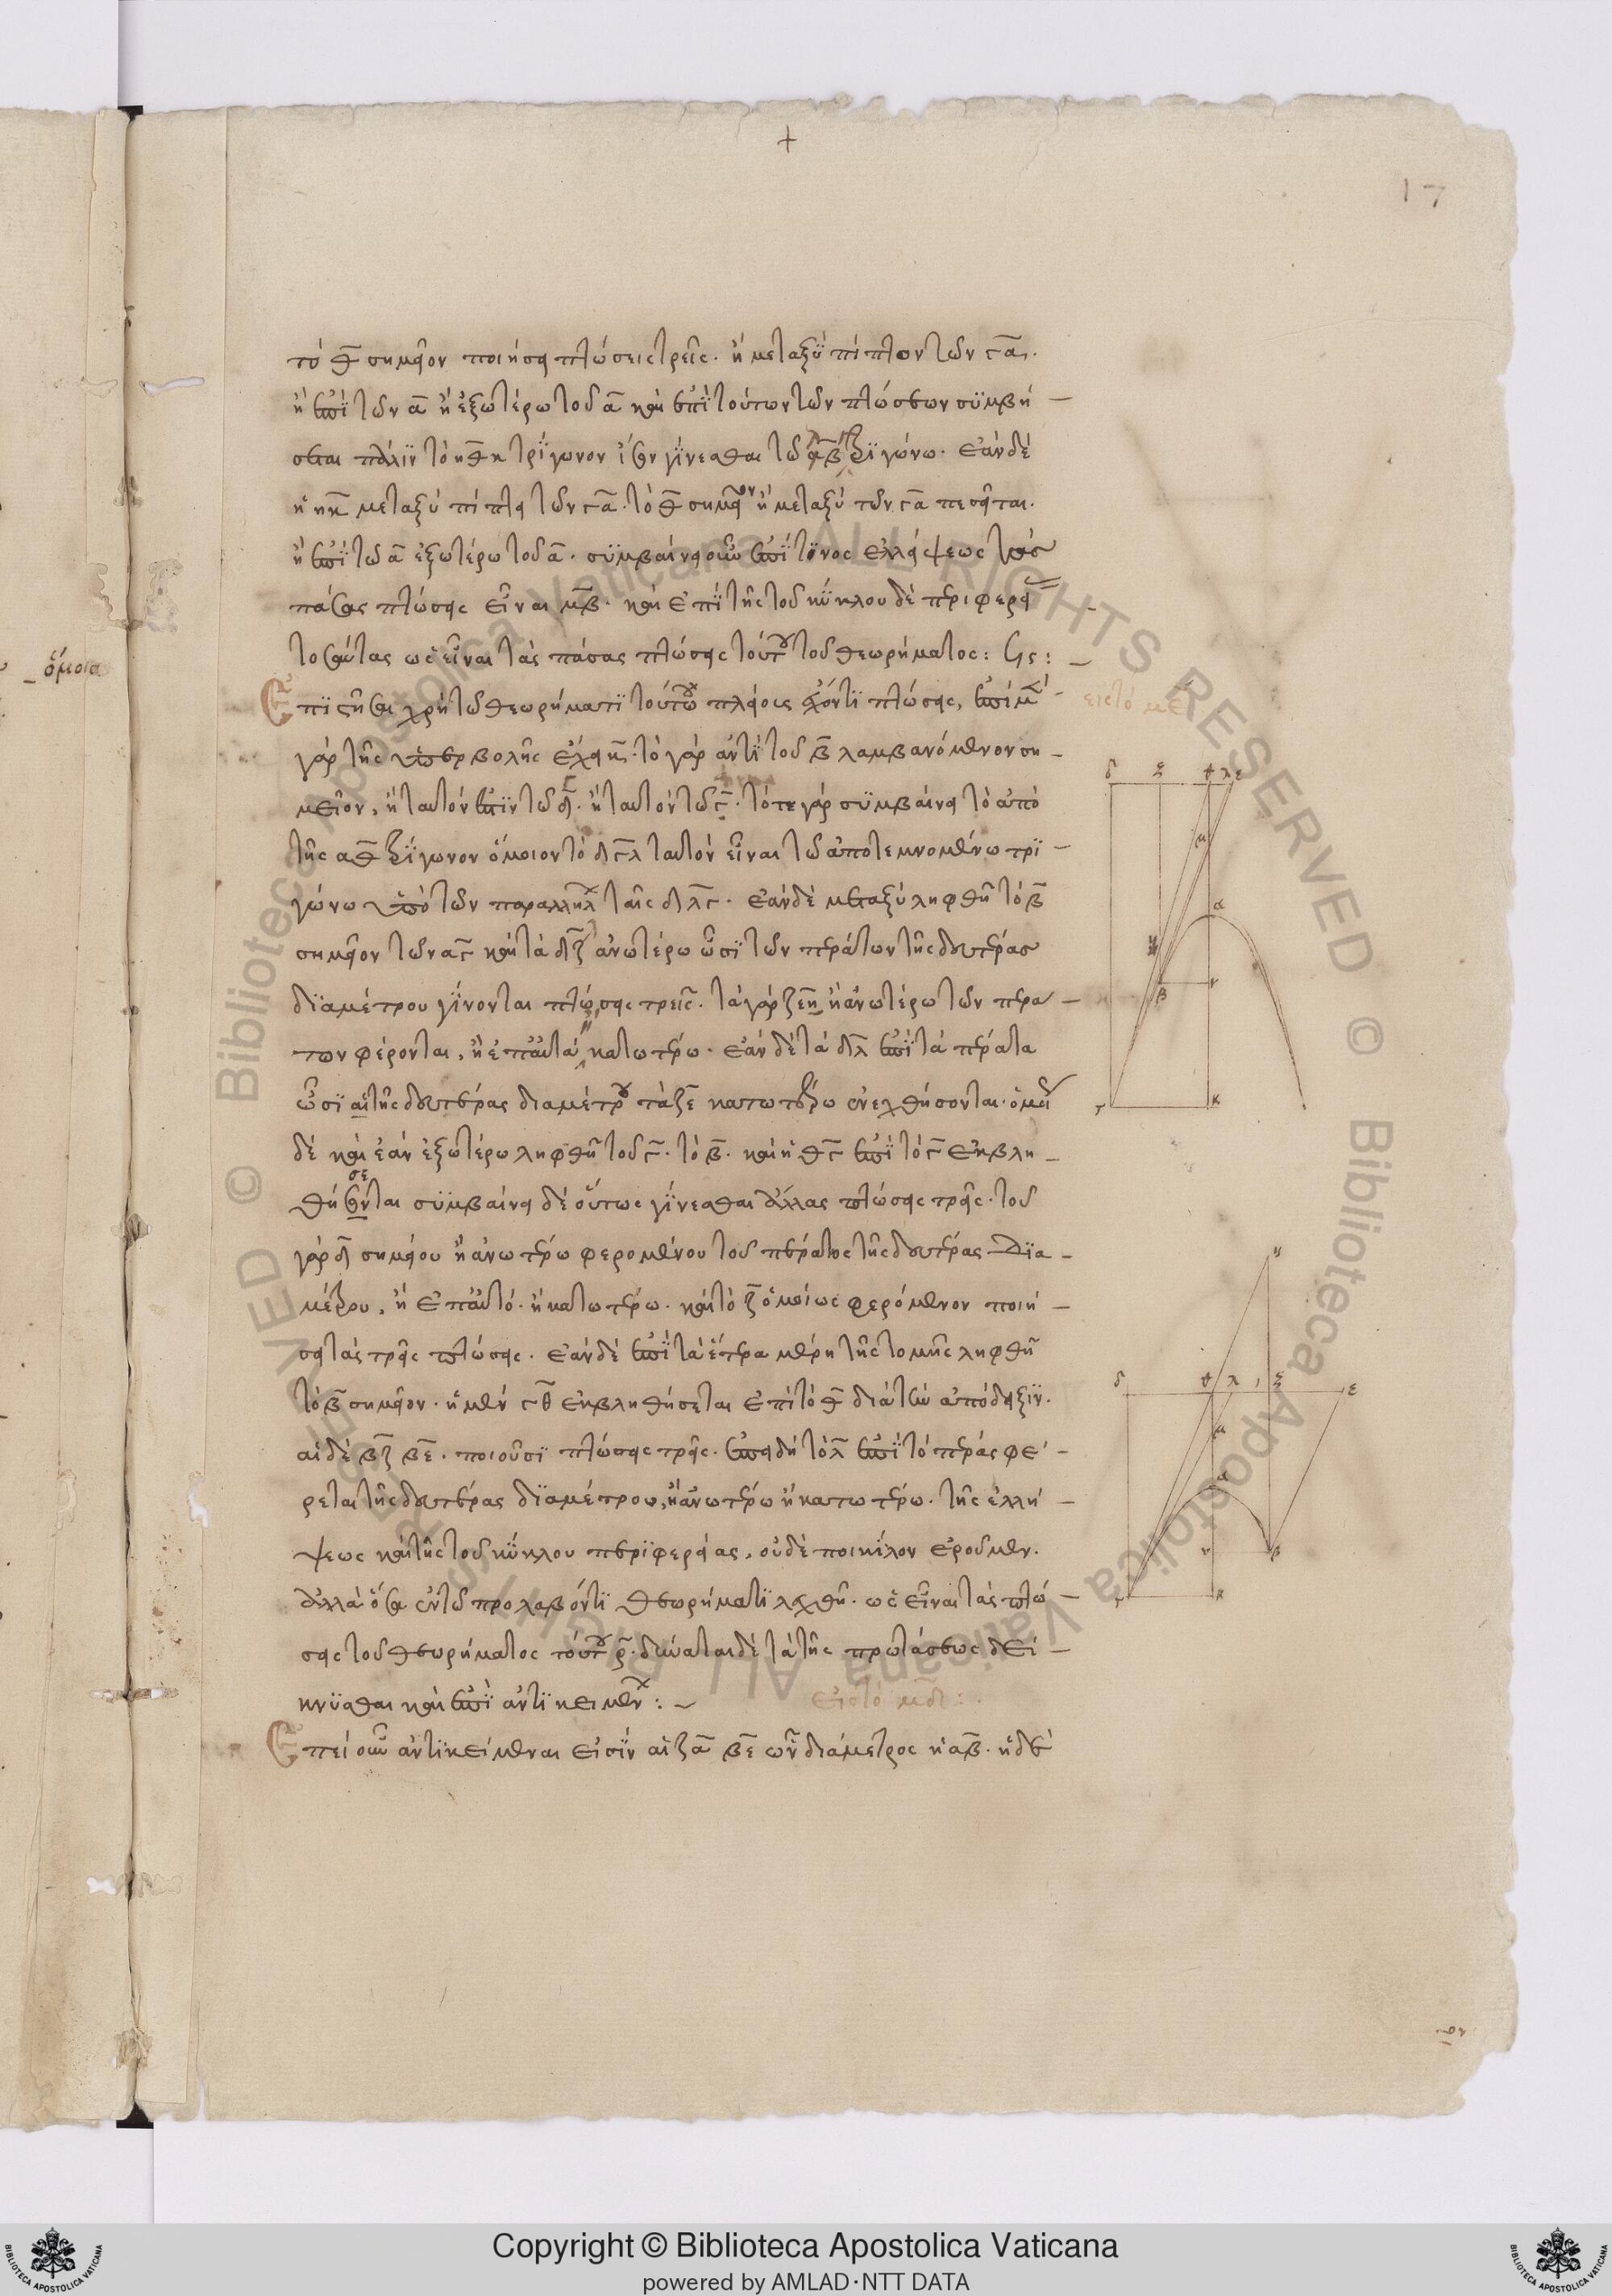 +
17
ὅμοια
τὸ θ σημεῖον ποιήσει πτώσεις τρεῖς. ἢ μεταξὺ πίπτον τῶν γα.
ἢ ἐπὶ τῶν α ἢ ἐξωτέρω τοῦ α καὶ ἐπὶ τούτων τῶν πτώσεων συμβή –
σεται πάλιν τὸ κθη τρίγωνον ἴσον γίνεσθαι τῶ τριγώνω. ἐὰν δὲ
ἡ ηκ μεταξὺ πίπτη τῶν γα. τὸ θ σημεῖον ἢ μεταξὺ τῶν γα πεσεῖται.
ἢ ἐπὶ τῶ α ἐξωτέρω τοῦ α. συμβαίνει οὖν ἐπὶ τῆς ἐλλείψεως τὰς
πάσας πτώσεις εἶναι μβ. καὶ ἐπὶ τῆς τοῦ κύκλου δὲ περιφερεί –
τοσαύτας ὡς εἶναι τὰς πάσας πτώσεις τούτου τοῦ θεωρήματος: Ϟς: –
Ἐπιστῆσαι χρὴ τῶ θεωρήματι τούτω πλείους ἔχοντι πτώσεις, ἐπὶ μὲν
εἰς τὸ με
γὰρ τῆς ὑπερβολῆς ἔχει κ. τὸ γὰρ ἀντὶ τοῦ β λαμβανόμενον ση –
μεῖον, ἢ ταυτόν ἐστιν τῶ α. ἢ ταυτὸν τῶ γ. τότε γὰρ συμβαίνει τὸ ἀπὸ
τῆς αθ τρίγωνον ὅμοιον τὸ δγλ ταυτὸν εἶναι τῶ ἀποτεμνομένω τρι –
γώνω ὑπὸ τῶν παραλλήλων ταῖς δλγ. ἐὰν δὲ μεταξὺ ληφθῆ τὸ β
σημεῖον τῶν αγ καὶ τὰ δλ ἀνωτέρω ὦσι τῶν περάτων τῆς δευτέρας
διαμέτρου γίνονται πτώσεις τρεῖς. τὰ γὰρ ζε ἢ ἀνωτέρω τῶν περά –
των φέρονται, ἢ ἐπ' αὐτὰ ἢ κατωτέρω. ἐὰν δὲ τὰ δλ ἐπὶ τὰ πέρατα
ὦσι τῆς δευτέρας διαμέτρου τὰ ζε κατωτέρω ἐνεχθήσονται. ὁμοίως
δὲ καὶ ἐὰν ἐξωτέρω ληφθῆ τοῦ γ. τὸ β. καὶ ἡ θγ ἐπὶ τὸ γ ἐκβλη –
θήσεται συμβαίνει δὲ οὕτως γίνεσθαι ἄλλας πτώσεις τρεῖς. τοῦ
γὰρ δ σημείου ἢ ἀνωτέρω φερομένου τοῦ πέρατος τῆς δευτέρας δια –
μέτρου, ἢ ἐπ' αὐτό. ἢ κατωτέρω. καὶ τὸ ζ ὁμοίως φερόμενον ποιή –
σει τὰς τρεῖς πτώσεις. ἐὰν δὲ ἐπὶ τὰ ἕτερα μέρη τῆς τομῆς ληφθῆ
τὸ β σημεῖον. ἡ μὲν γθ ἐκβληθήσεται ἐπὶ τὸ θ διὰ τὴν ἀπόδειξιν.
αἱ δὲ βζ βε. ποιοῦσι πτώσεις τρεῖς. ἐπειδὴ τὸ λ ἐπὶ τὸ πέρας φέ –
ρεται τῆς δευτέρας διαμέτρου, ἢ ἀνωτέρω ἢ κατωτέρω. τῆς ἐλλεί –
ψεως καὶ τῆς τοῦ κύκλου περιφερείας, οὐδὲ ποικίλον ἐροῦμεν.
ἀλλὰ ὅσα ἐν τῶ προλαβόντι θεωρήματι λεχθῆ. ὡς εἶναι τὰς πτώ –
σεις τοῦ θεωρήματος τούτου ρ. δύναται δὲ τὰ τῆς προτάσεως δεί –
κνυσθαι καὶ ἐπὶ ἀντικειμένων: –
εἰς τὸ μδ:
Ἐπεὶ οὖν ἀντικείμεναι εἰσὶν αἱ ζα βε ὧν διάμετρος ἡ αβ. ἡ δὲ
δ ξ θ λ ε
μ
α
β ν
γ κ
η
δ θ λ ξ ε
μ
α
ν β
γ κ
Copyright © Biblioteca Apostolica Vaticana
powered by AMLAD·NTT DATA
BIBLIOTECA APOSTOLICA VATICANA
BIBLIOTECA APOSTOLICA VATICANA
© Biblioteca Apostolica Vaticana ALL RIGHTS RESERVED
© Biblioteca Apostolica Vaticana ALL RIGHTS RESERVED